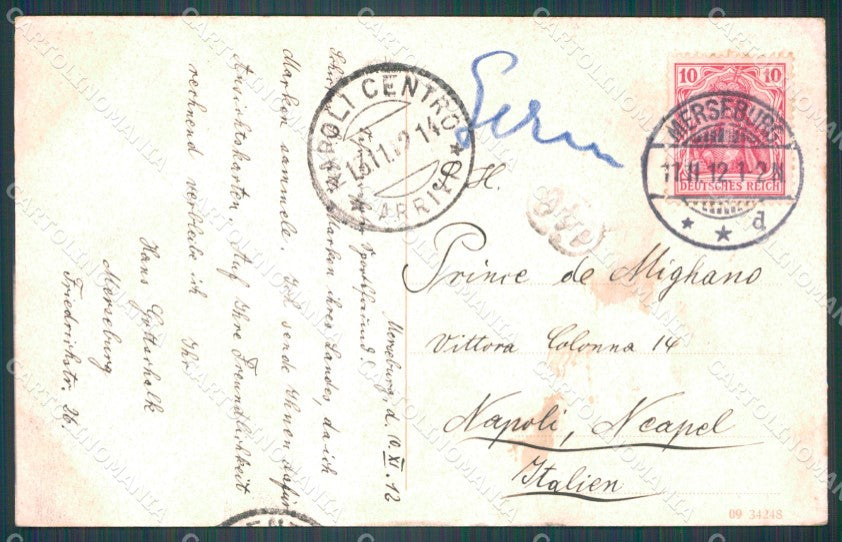 Merseburg, d. 10. XI. 12
Sportsfreund!
Marken ihres Landes, da ich
Marken sammele. Ich sende Ihnen dafür
Ansichtskarten. Auf Ihre Freundlichkeit
rechnend verbleibe ich Ihr
Hans Gottschalk
Merseburg
Friedrichstr. 26.
NAPOLI CENTRO
13.11.12 14
ARRIVI
Germ
10 10
DEUTSCHES REICH
MERSEBURG
11.11.12.1-2N
d
S. H.
Prince de Mighano
Vittora Colonna 14
Napoli, Neapel
Italien
09 34248
CARTOLINOMANIA